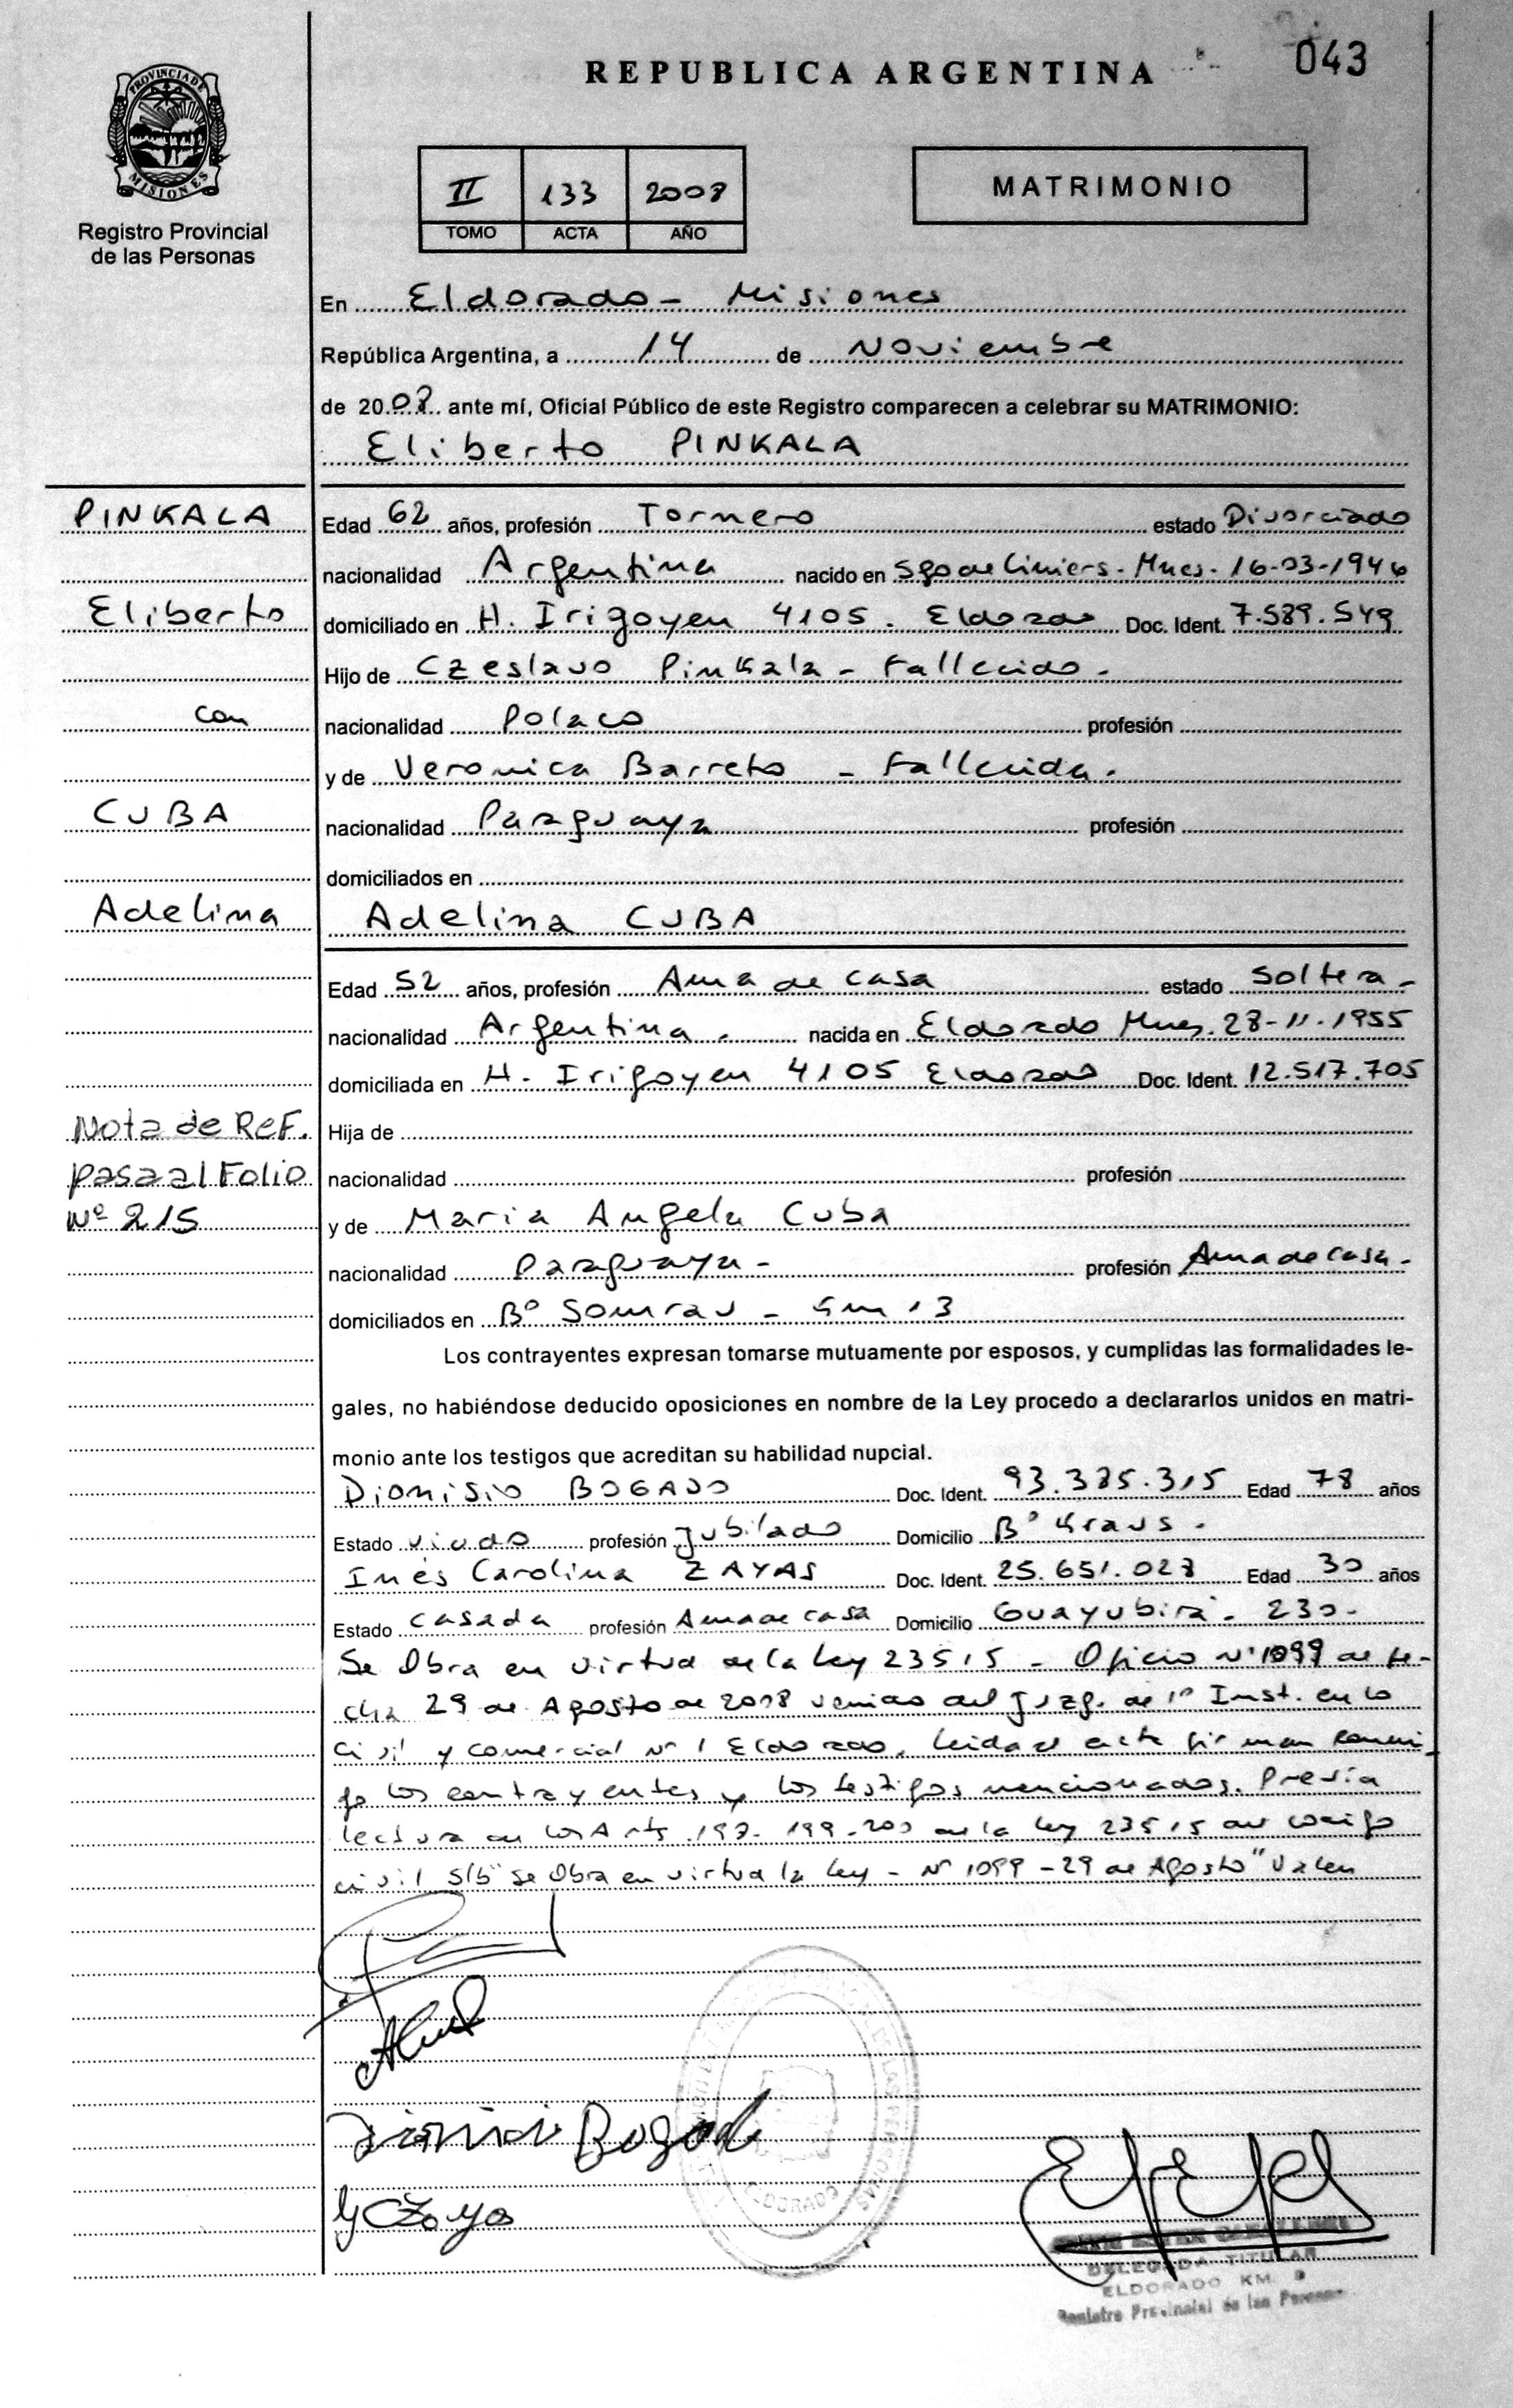 REPUBLICA ARGENTINA
043
PROVINCIA DE MISIONES
Registro Provincial
de las Personas
II 133 2008
TOMO ACTA AÑO
MATRIMONIO
En Eldorado - Misiones
República Argentina, a 14 de Noviembre
de 2008 ante mí, Oficial Público de este Registro comparecen a celebrar su MATRIMONIO:
Eliberto PINKALA
PINKALA
Eliberto
con
CUBA
Adelina
Nota de Ref.
pasa al Folio
Nº 215
Edad 62 años, profesión Tornero estado Divorciado
nacionalidad Argentina nacido en Sgo de Liniers - Mnes - 16-03-1946
domiciliado en H. Irigoyen 4105 . Eldorado Doc. Ident. 7.589.549
Hijo de Czeslavo Pinkala - Fallecido -
nacionalidad Polaco profesión
y de Veronica Barreto - Fallecida.
nacionalidad Paraguaya profesión
domiciliados en
Adelina CUBA
Edad 52 años, profesión Ama de casa estado Soltera -
nacionalidad Argentina . nacida en Eldorado Mnes. 28-11-1955
domiciliada en H. Irigoyen 4105 Eldorado Doc. Ident. 12.517.705
Hija de
nacionalidad profesión
y de Maria Angela Cuba
nacionalidad Paraguaya - profesión Ama de casa -
domiciliados en Bº Somrau - Km 13
Los contrayentes expresan tomarse mutuamente por esposos, y cumplidas las formalidades le-
gales, no habiéndose deducido oposiciones en nombre de la Ley procedo a declararlos unidos en matri-
monio ante los testigos que acreditan su habilidad nupcial.
Dionisio BOGADO Doc. Ident. 93.385.315 Edad 78 años
Estado viudo profesión Jubilado Domicilio Bº Kraus -
Inés Carolina ZAYAS Doc. Ident. 25.651.028 Edad 30 años
Estado casada profesión Ama de casa Domicilio Guayubira - 230 -
Se Obra en virtud de la Ley 23515 - Oficio Nº 1099 de fe-
cha 29 de Agosto de 2008 venido del Juzg. de 1º Inst. en lo
Civil y Comercial Nº 1 Eldorado. Leida el acta firman conmi-
go los contrayentes y los testigos mencionados. Previa
lectura de los Arts. 197 - 199 - 200 de la Ley 23515 del codigo
civil S/b "Se Obra en virtud la Ley - Nº 1099 - 29 de Agosto" Valen
Dionisio Bogado
YCZayas
ELDORADO
DELEGADA TITULAR
ELDORADO KM. 9
Registro Provincial de las Personas